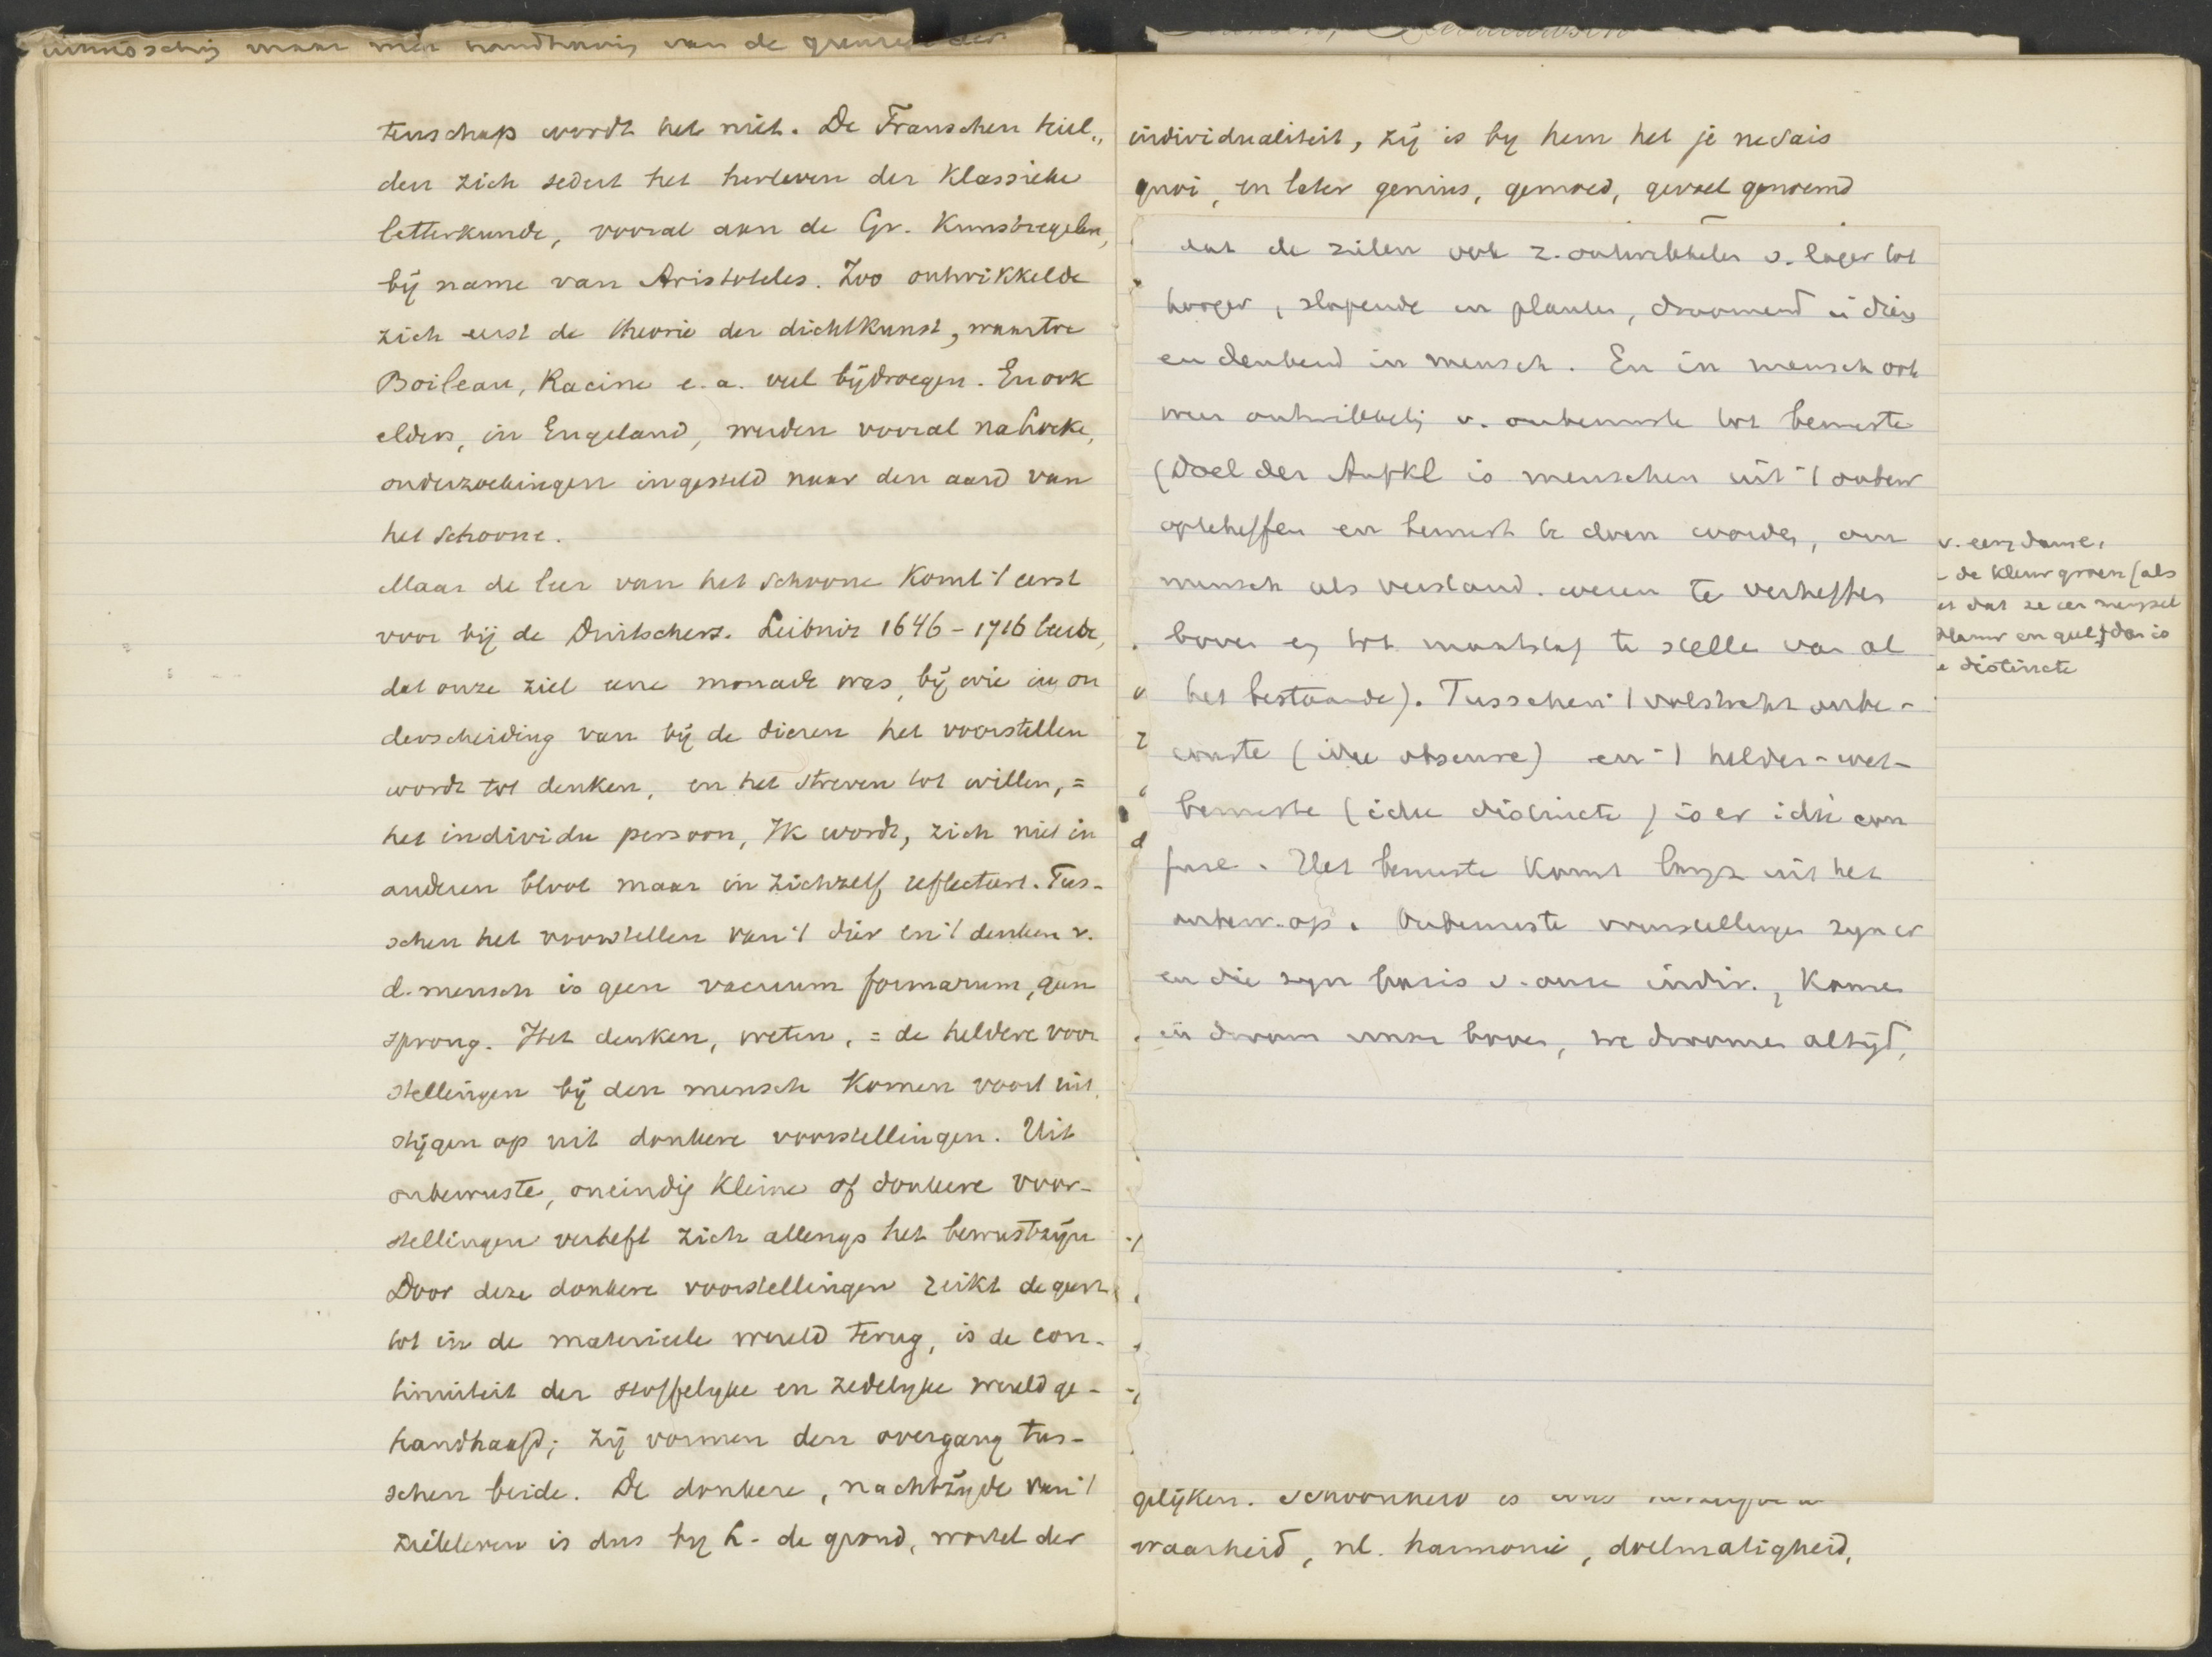 maar met handhaving van de grenzen der
tenschap wordt het niet. De Franschen hiel-
den zich sedert het herleven der Klassieke
letterkunde, vooral aan de Gr. Kunstregelen,
bij name van Aristoteles. Zoo ontwikkelde
zich eerst de theorie der dichtkunst, waartoe
Boileau, Racine e.a. veel bijdroegen. En ook
elders, in Engeland, werden vooral na Locke,
onderzoekingen ingesteld naar den aard van
het schoone.
Maar de leer van het schoone komt 't eerst
voor bij de Duitschers. Leibniz 1646-1716 leerde,
dat onze ziel eene monade was, bij wie in on
derscheiding van bij de dieren het voorstellen
wordt tot denken, en het streven tot willen, =
het individu persoon, Ik wordt, zich niet in
anderen bloot maar in zichzelf reflecteert. Tus-
schen het voorstellen van 't dier en 't denken v.
d. mensch is geen vacuum formarum, geen
sprong. Het denken, weten, = de heldere voor
stellingen bij den mensch komen voort uit,
stijgen op uit donkere voorstellingen. Uit
onbewuste, oneindig kleine of donkere voor-
stellingen verheft zich allengs het bewustzijn
Door deze donkere voorstellingen reikt de geest
tot in de materieele wereld terug, is de con-
tinuiteit der stoffelyke en zedelyke wereld ge-
handhaafd; zij vormen den overgang tus-
schen beide. De donkere, nachtzijde van 't
zieleleven is dus by L. de grond, wortel der
individualiteit, zij is by hem het je ne sais
quoi, en later genius, gemoed, gevoel genoemd
dat de zielen ook z. ontwikkelen v. lager tot
hooger, slapende in planten, droomend i dier
en denkend in mensch. En in mensch ook
weer ontwikkeling v. onbewuste tot bewuste
(Doel der Aufkl is menschen uit 't onbew
opteheffen en bewust te doen worden, om
mensch als verstand. wezen te verheffen
boven en tot maatstaf te stellen van al
het bestaande). Tusschen 't volstrekt onbe-
wuste (idee obscure) en 't helder-wel-
bewuste (idee distincte) is er idée con
fuse. Het bewuste komt langz uit het
onbew. op. Onbewuste voorstellingen zyn er
en die zyn basis v. onze indiv., komen
in droom weer boven, we droomen altijd,
v. eenz dame,
de kleur groen (als
dat ze een mengsel
blauw en geel) dan is
distincte
gelijken. Schoonheid is
waarheid, nl. harmonie, doelmatigheid,